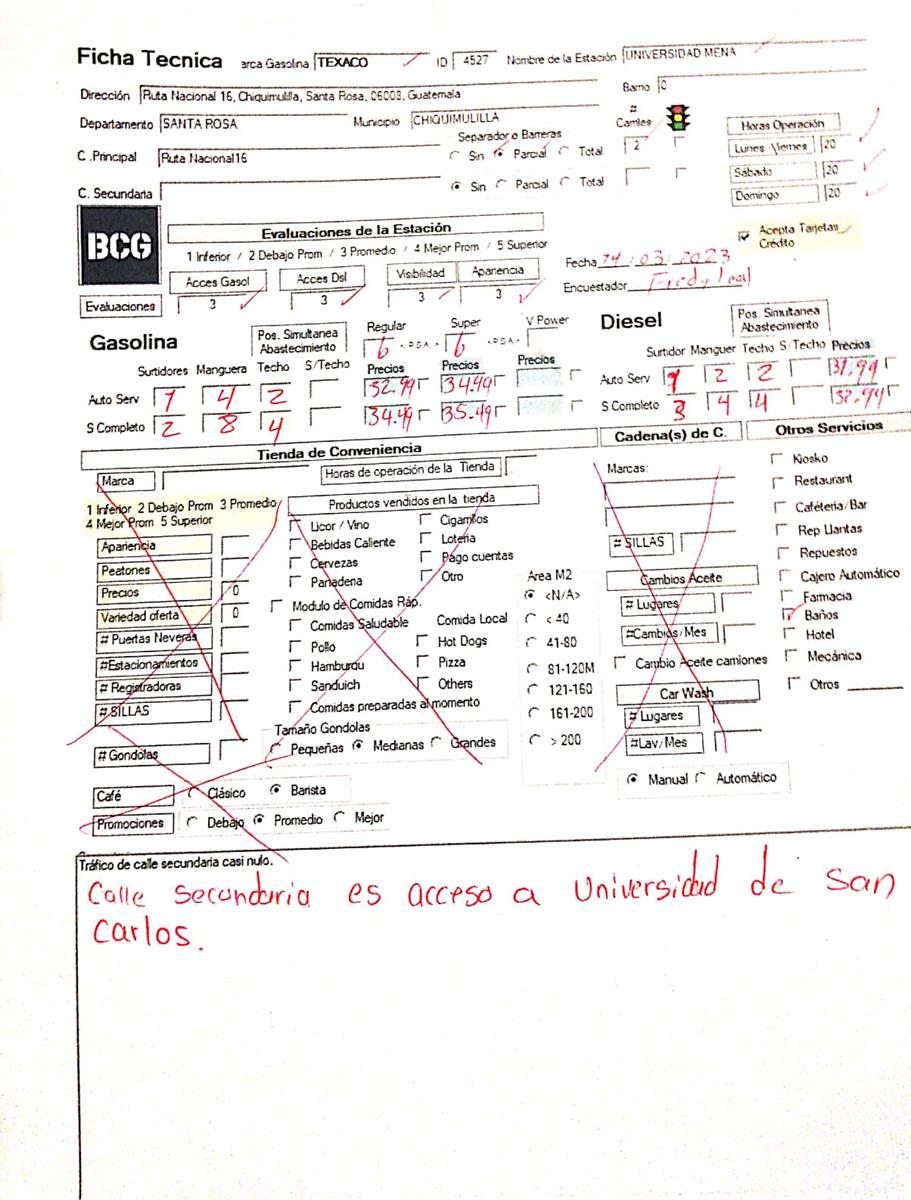 Ficha Tecnica arca Gasolina TEXACO ID 4527 Nombre de la Estación UNIVERSIDAD MENA
Dirección Ruta Nacional 16, Chiquimulilla, Santa Rosa, 06008, Guatemala Barrio 0
Departamento SANTA ROSA Municipio CHIQUIMULILLA # Carriles Horas Operación
Separador o Barreras
C .Principal Ruta Nacional 16 Sin Parcial Total 2 Lunes -Viernes 20
Sábado 20
C. Secundaria Sin Parcial Total Domingo 20
BCG
Evaluaciones de la Estación
1 Inferior / 2 Debajo Prom / 3 Promedio / 4 Mejor Prom / 5 Superior
Acepta Tarjetas Crédito
Acces Gasol Acces Dsl Visibilidad Apariencia
Fecha 14/03/2023
Evaluaciones 3 3 3 3
Encuestador Fredy Leal
Gasolina Pos. Simultanea Abastecimiento Regular 6 <PSA> Super 6 <PSA> V Power
Diesel Pos. Simultanea Abastecimiento
Surtidores Manguera Techo S/Techo Precios Precios Precios
Surtidor Manguer Techo S/Techo Precios
Auto Serv 1 4 2 32.99 34.49
Auto Serv 1 2 2 31.99
S Completo 2 8 4 34.49 35.49
S Completo 3 4 4
Tienda de Conveniencia Cadena(s) de C. Otros Servicios
Marca Horas de operación de la Tienda
1 Inferior 2 Debajo Prom 3 Promedio
4 Mejor Prom 5 Superior
Apariencia
Peatones
Precios 0
Variedad oferta 0
# Puertas Neveras
#Estacionamientos
# Registradoras
# SILLAS
# Gondolas
Productos vendidos en la tienda
Licor / Vino Cigarrillos
Bebidas Caliente Loteria
Cervezas Pago cuentas
Panaderia Otro
Modulo de Comidas Ráp.
Comidas Saludable Comida Local
Pollo Hot Dogs
Hamburgu Pizza
Sanduich Others
Comidas preparadas al momento
Tamaño Gondolas
Pequeñas Medianas Grandes
Area M2
<N/A>
< 40
41-80
81-120M
121-160
161-200
> 200
Café Clásico Barista
Promociones Debajo Promedio Mejor
Marcas:
# SILLAS
Cambios Aceite
# Lugares
#Cambios/Mes
Cambio Aceite camiones
Car Wash
# Lugares
#Lav/Mes
Manual Automático
Kiosko
Restaurant
Caféteria/Bar
Rep Llantas
Repuestos
Cajero Automático
Farmacia
Baños
Hotel
Mecánica
Otros
Tráfico de calle secundaria casi nulo.
Calle secundaria es acceso a Universidad de San
Carlos.